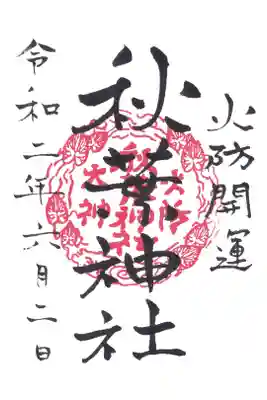 火防開運
秋葉神社
令和二年六月二日